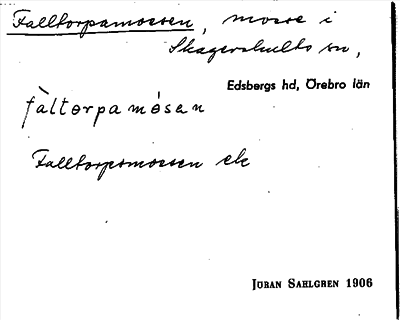 Falltorpamossen, mosse i
Skagershults sn,
Edsbergs hd, Örebro län
fàltorpamósen
Falltorpsmossen ek
JÖRAN SAHLGREN 1906